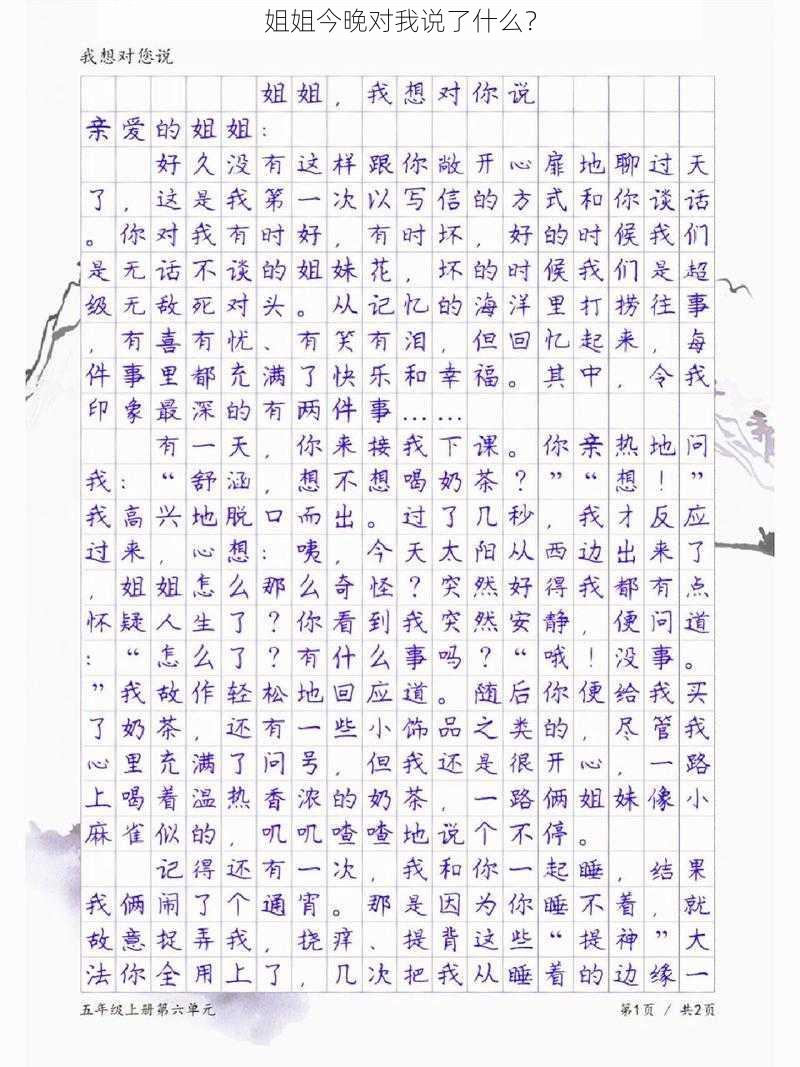 姐姐今晚对我说了什么？
我想对您说
姐姐，我想对你说
亲爱的姐姐：
好久没有这样跟你敞开心扉地聊过天
了，这是我第一次以写信的方式和你谈话
。你对我有时好，有时坏，好的时候我们
是无话不谈的姐妹花，坏的时候我们是超
级无敌死对头。从记忆的海洋里打捞往事
，有喜有忧、有笑有泪，但回忆起来，每
件事里都充满了快乐和幸福。其中，令我
印象最深的有两件事……
有一天，你来接我下课。你亲热地问
我：“舒涵，想不想喝奶茶？”“想！”
我高兴地脱口而出。过了几秒，我才反应
过来，心想：咦，今天太阳从西边出来了
，姐姐怎么那么奇怪？突然好得我都有点
怀疑人生了？你看到我突然安静，便问道
：“怎么了？有什么事吗？“哦！没事。
”我故作轻松地回应道。随后你便给我买
了奶茶，还有一些小饰品之类的，尽管我
心里充满了问号，但我还是很开心，一路
上喝着温热香浓的奶茶，一路俩姐妹像小
麻雀似的，叽叽喳喳地说个不停。
记得还有一次，我和你一起睡，结果
我俩闹了个通宵。那是因为你睡不着，就
故意捉弄我，挠痒、提背这些“提神”大
法你全用上了，几次把我从睡着的边缘一
五年级上册第六单元
第1页 / 共2页